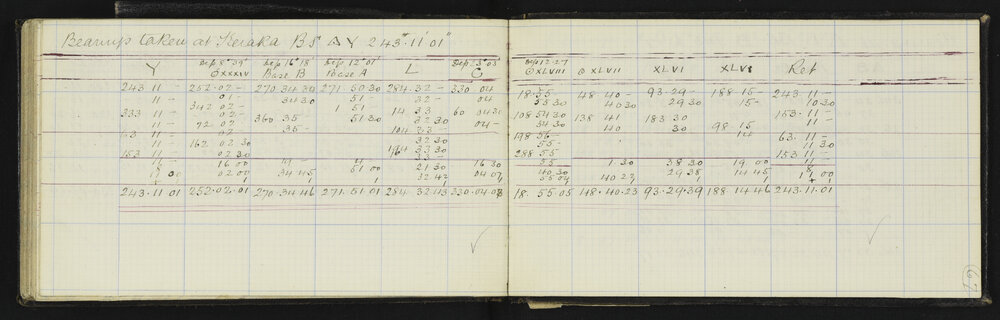 Bearings taken at Keraka B S △ Y 243° 11' 01"
Dep 8° 39' Dep 16° 18' Dep 12° 01' Dep 23° 03' Dep 12.27
Y XXXIV Base B Base A L C XLVIII XLVII XLVI XLV Ref
243 11 – 252.02 – 270 34 30 271 50 30 284 32 – 330 04 18.55 48.40 – 93.29 – 188 15 – 243.11 –
11 – 01 34 30 51 32 – 04 55 30 40 30 29 30 15 – 10 30
333 11 – 342 02 – 1 51 14 33 60 04 30 108 54 30 138 41 183 30 153.11 –
11 – 72 02 – 360 35 51 30 32 30 04 – 54 30 40 30 98 15 11 –
02 35 – 104 33 – 198 56 – 14 63.11 –
11 – 162 02 30 32 30 55 – 11 30
153 11 – 02 30 194 33 30 288 55 153 11 –
11 – 16 00 11 – 11 33 – 16 30 55 1 30 38 30 19 00 11 –
00 02 00 34 45 51 00 21 30 04 07 40.30 40 23 29 38 14 45 00
1 1 32 42 55 04 1 1 1
243.11 01 252.02.01 270.34 46 271.51 01 284.32.43 330.04 08 18.55.05 148.40.23 93.29.39 188 14 46 243.11.01
67